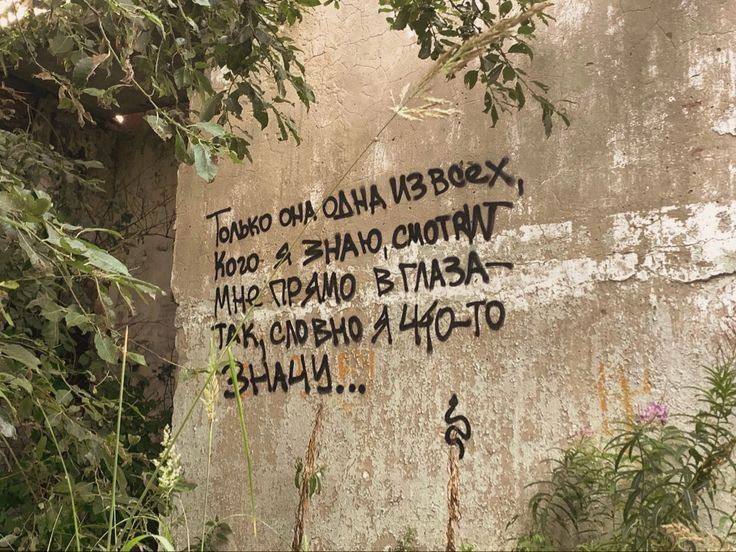 Только она одна из всех,
кого я знаю, смотрит
мне прямо в глаза—
так, словно я что-то
значу...